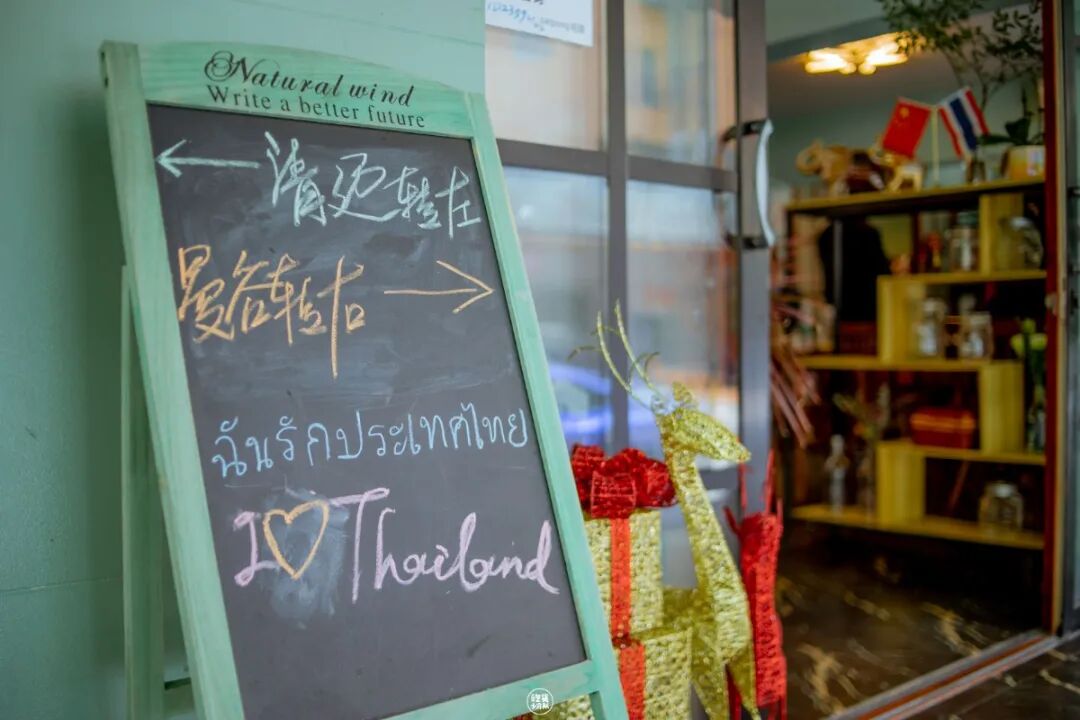 Natural wind
Write a better future
← 清迈转左
曼谷转右 →
ฉันรักประเทศไทย
I ♡ Thailand